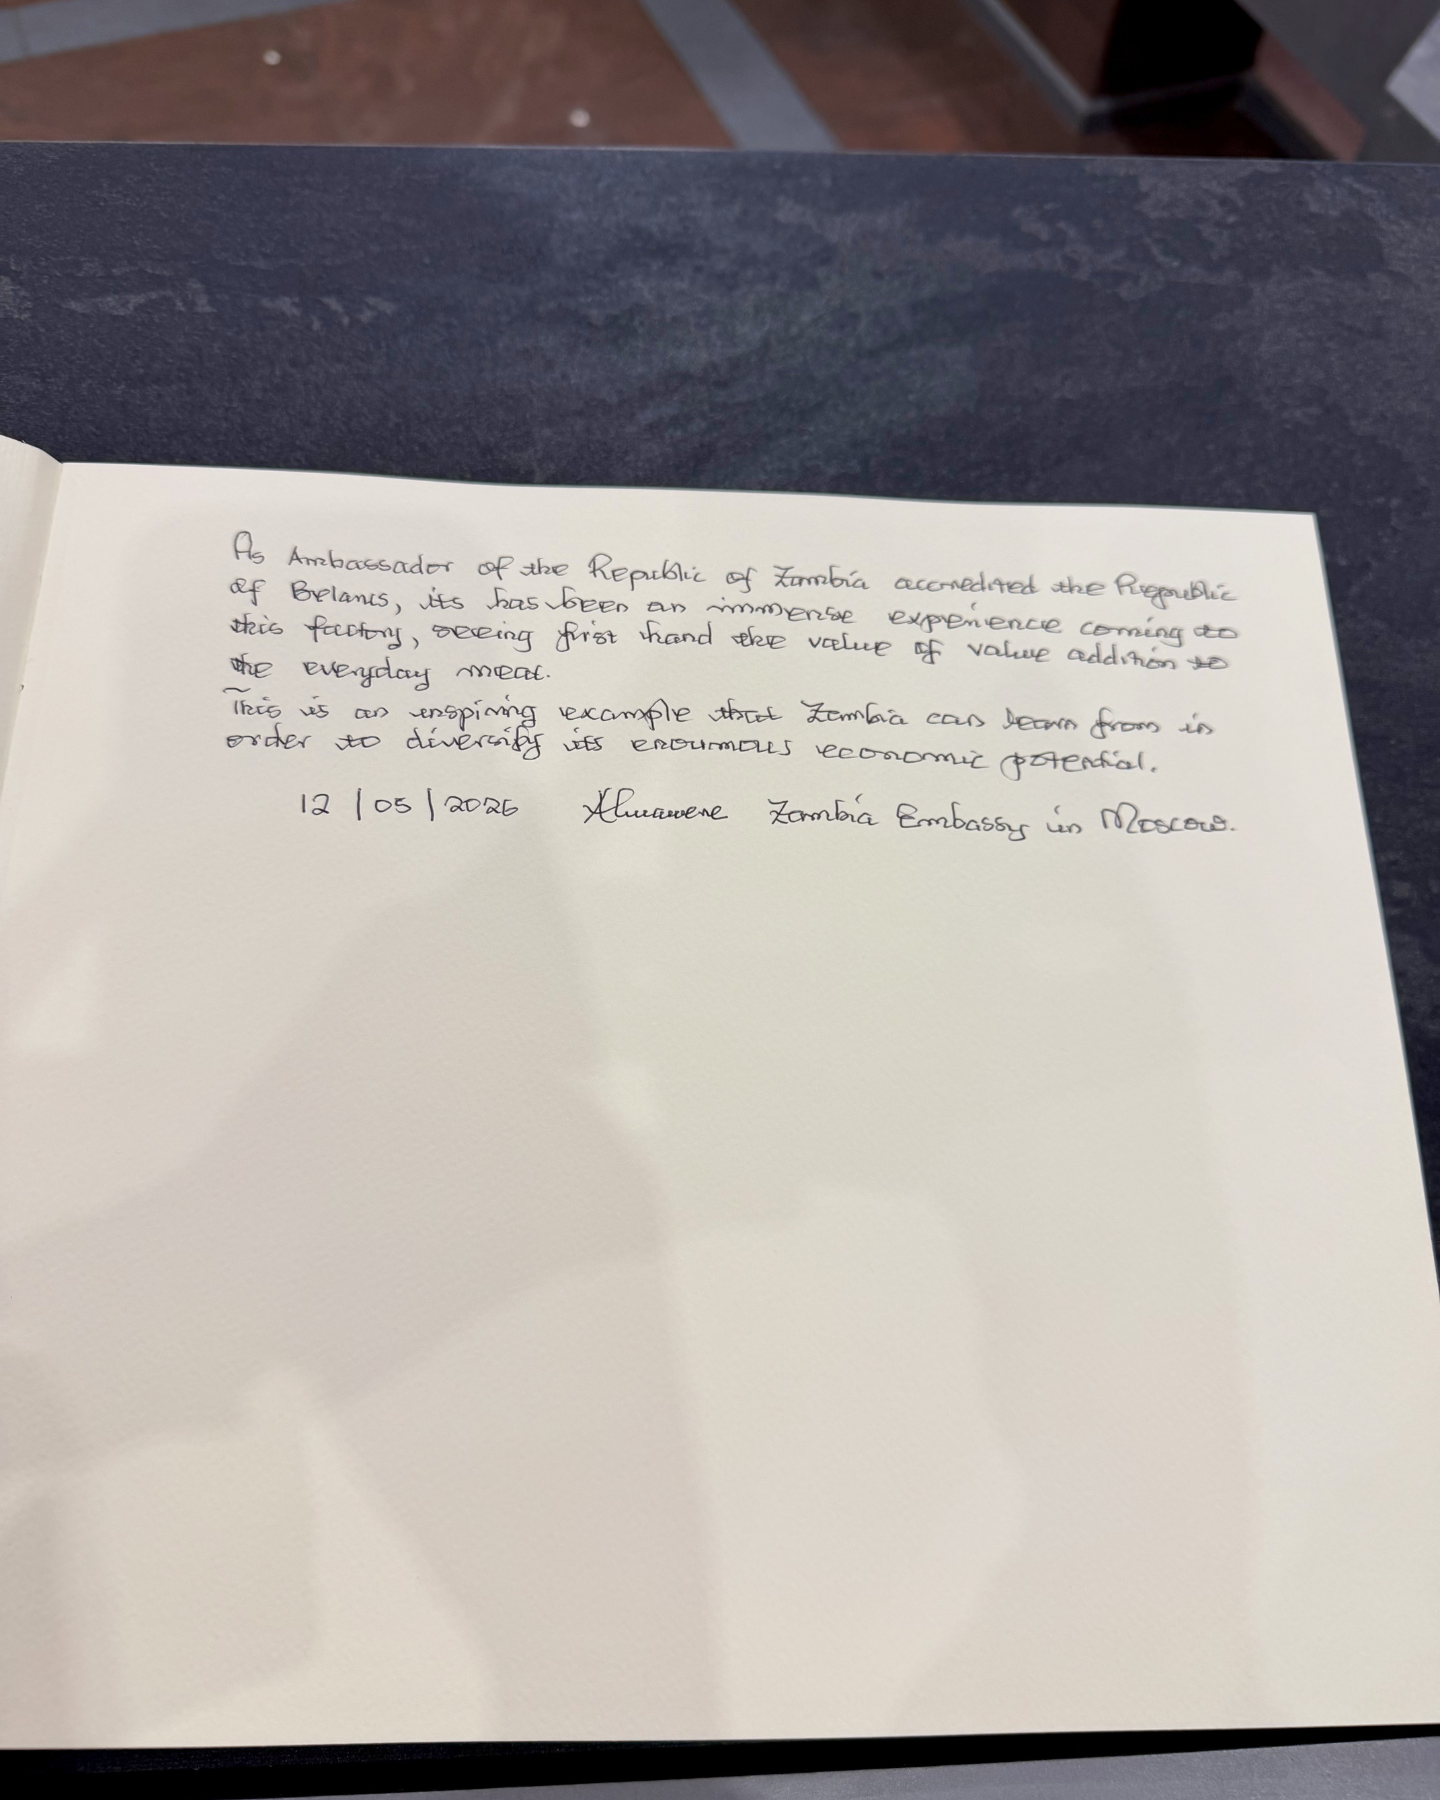 As Ambassador of the Republic of Zambia accredited the Republic
of Belarus, its has been an immense experience coming to
this factory, seeing first hand the value of value addition to
the everyday meat.
This is an inspiring example that Zambia can learn from in
order to diversify its enoumous economic potential.
12/05/2026 Zambia Embassy in Moscow.